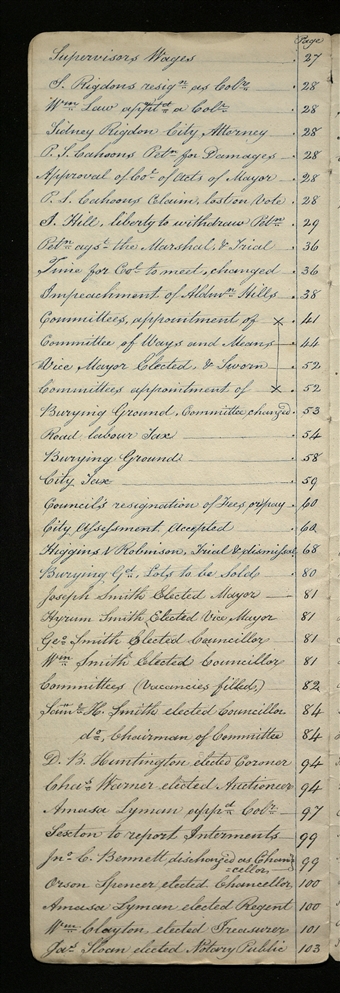 Page
Supervisors Wages 27
S. Rigdons resign. as Colr. 28
Wm. Law apptd. a Colr. 28
Sidney Rigdon City Attorney 28
P. S. Cahoons Petn. for Damages 28
Approval of Col. of acts of Mayor 28
P. S. Cahoons Claim, lost on Vote 28
I. Hill, liberty to withdraw Petn. 29
Petn. agst. the Marshal, & Trial 36
Time for Col. to meet, changed 36
Impeachment of Aldmn. Hills 38
Committees, appointment of × 41
Committee of Ways and Means 44
Vice Mayor Elected, & Sworn 52
Committees appointment of × 52
Burying Ground, Committee changed 53
Road labour Tax 54
Burying Ground 58
City Tax 59
Council's resignation of Fees or pay 60
City Assessment Accepted 60
Higgins & Robinson, Trial & dismissed 68
Burying Gd., Lots to be Sold 80
Joseph Smith Elected Mayor 81
Hyrum Smith Elected Vice Mayor 81
Geo. Smith Elected Councillor 81
Wm. Smith Elected Councillor 81
Committees (Vacancies filled,) 82
Saml. H. Smith elected Councillor 84
do., Chairman of Committee 84
D. B. Huntington elected Coroner 94
Chas. Warner elected Auctioneer 94
Amasa Lyman appd. Colr. 97
Sexton to report Interments 99
Jno. C. Bennett discharged as Chan= 99
=cellor,
Orson Spencer elected Chancellor, 100
Amasa Lyman elected Regent 100
Wm. Clayton, elected Treasurer 101
Jas. Sloan elected Notary Public 103